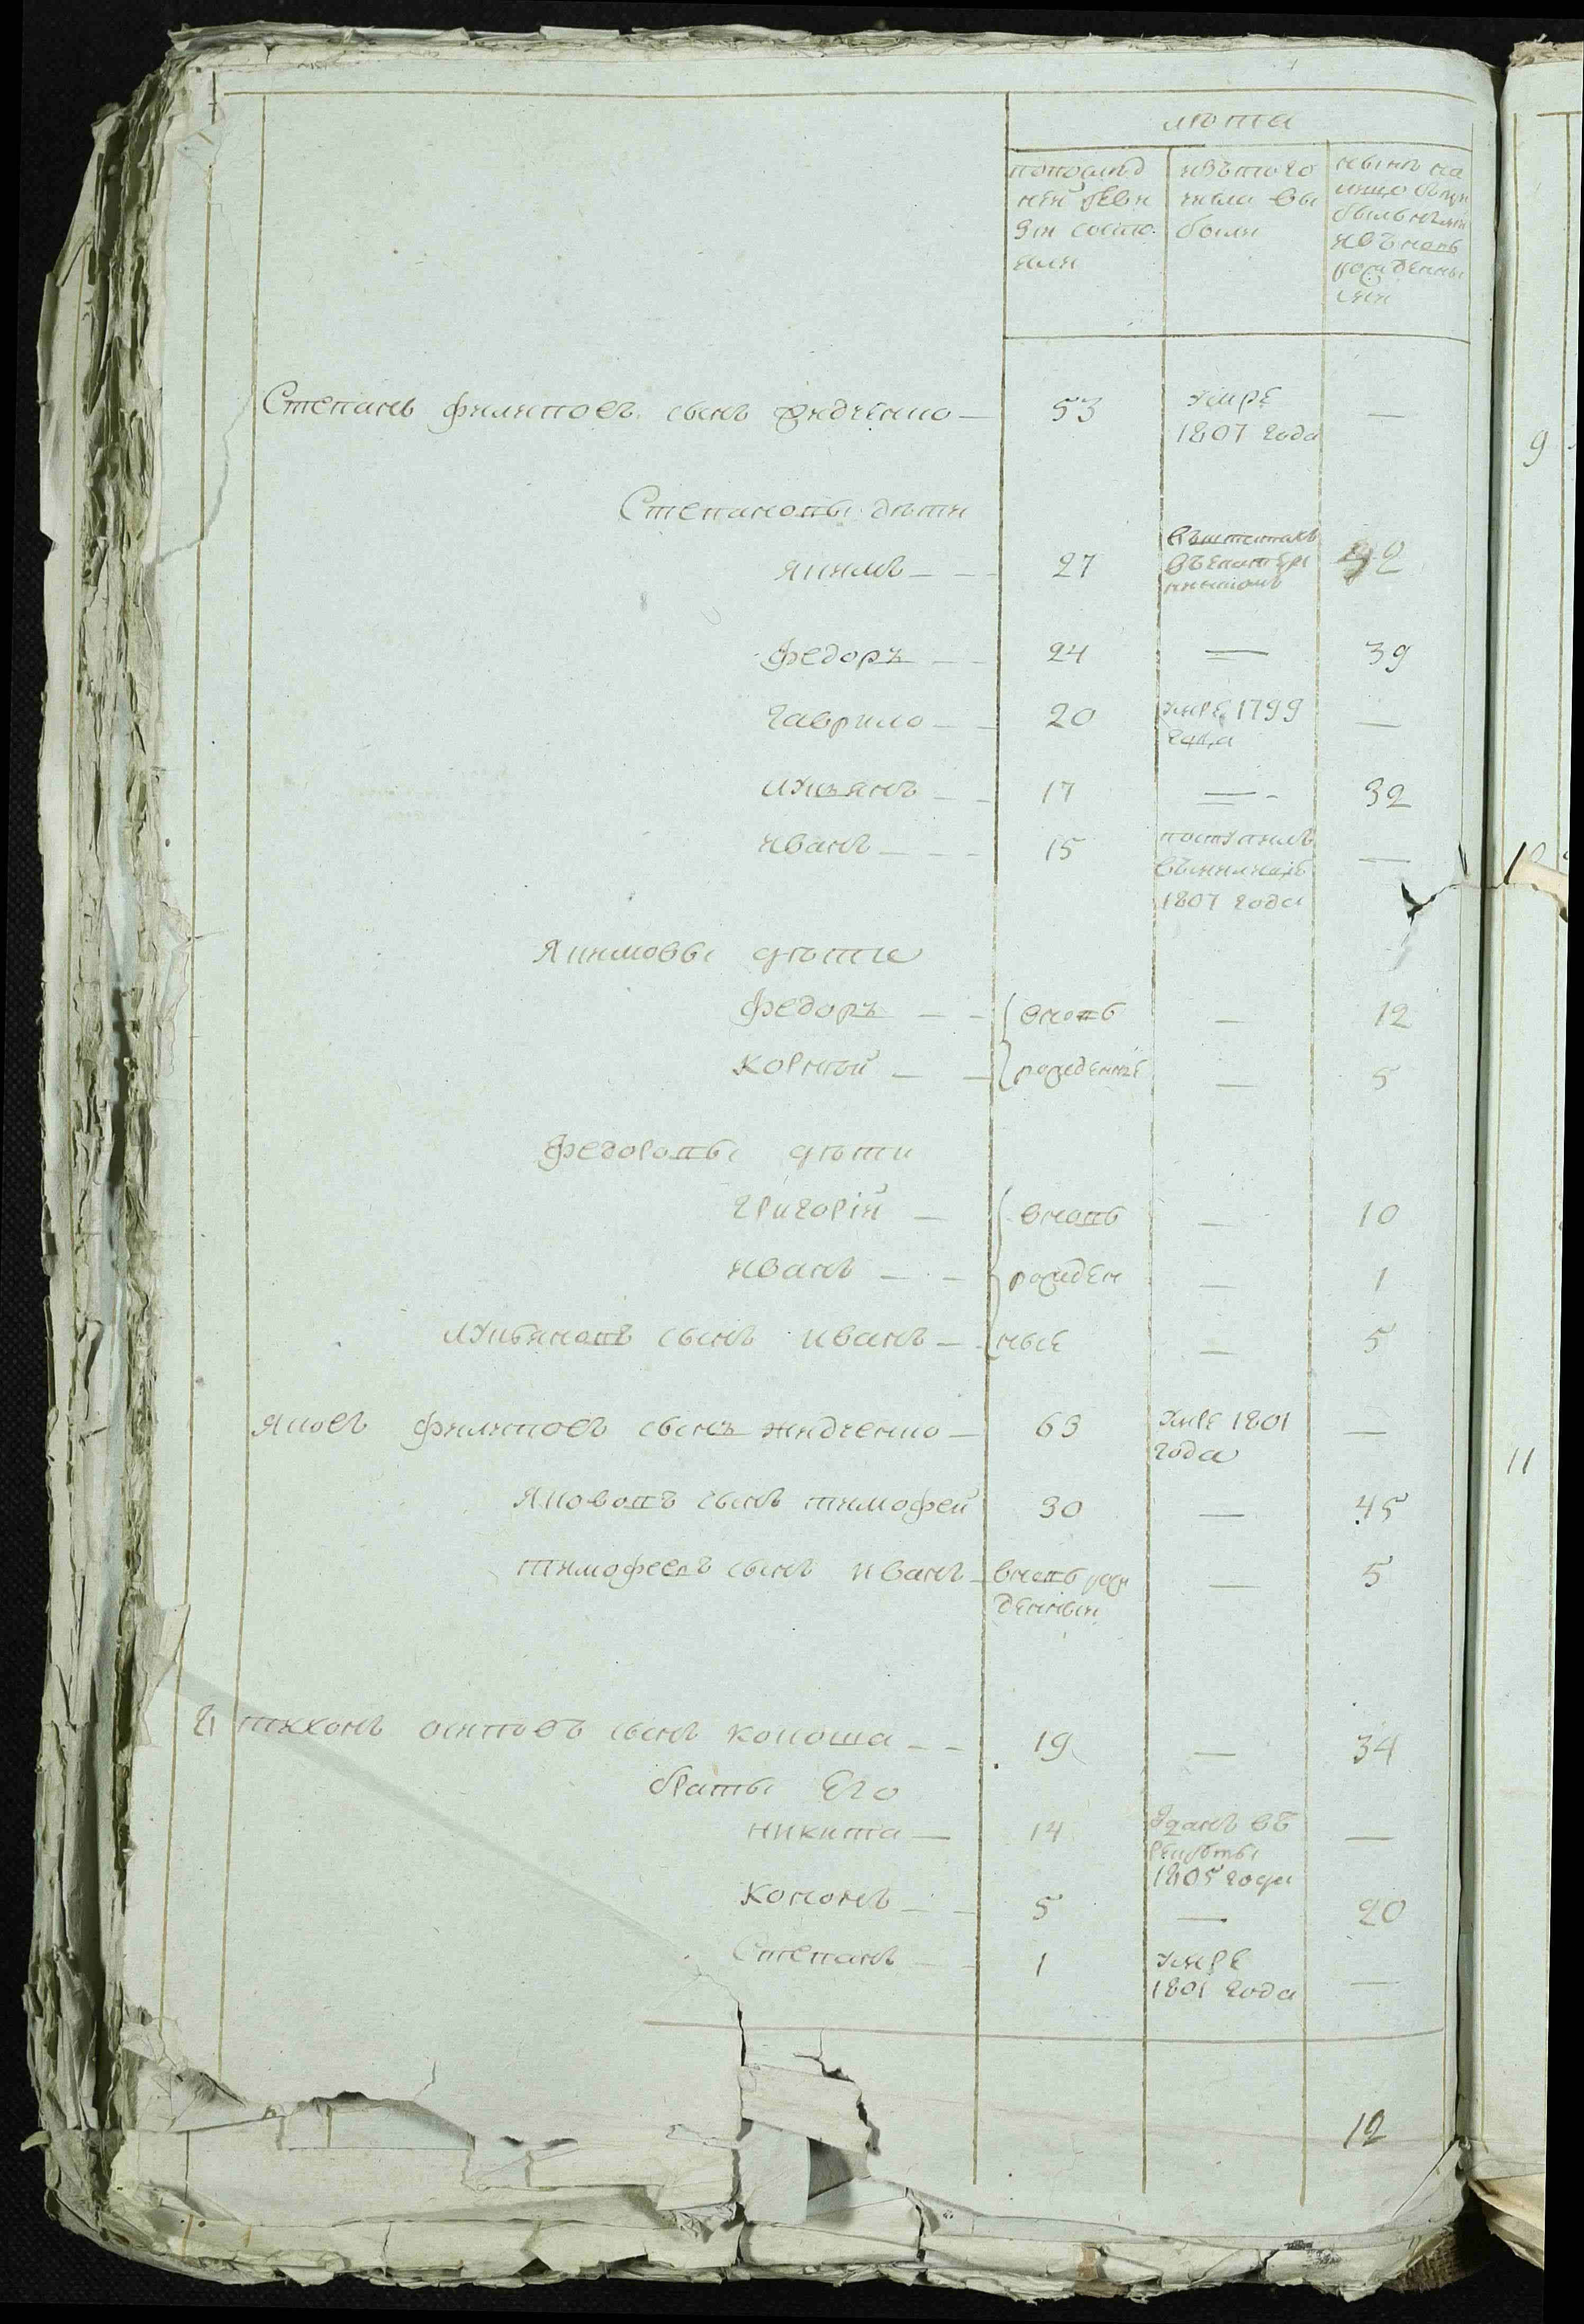 лѣта
попослѣд нѣй реви зіи состо яли
изътого числа вы были
нынѣ на лицо
новь рожденны
Степанъ филиповъ сынъ жидченко — 53 умре 1807 года —
Степановы дѣти
якимъ — — 27 42
федоръ — — 24 — 39
гаврило — — 20 умре 1799 года —
лукьянъ — — 17 — 32
иванъ — — — 15 поступилъ 1807 года —
Якимовы дѣти
федоръ — — вновь — 12
корнѣй — — рожденніе — 5
федоровы дѣти
григорій — вновь — 10
иванъ — — рожден — 1
лукьяновъ сынъ иванъ — ные — 5
яковъ филиповъ сынъ жидченко — 63 умре 1801 года —
яковovъ сынъ тимофей 30 — 45
тимофеевъ сынъ иванъ вновь рож денный — 5
тихонъ осиповъ сынъ кокоша — — 19 — 34
браты Его
никита — 14 зданъ въ рекруты 1805 года —
кононъ — — 5 — 20
Степанъ — — 1 умре 1801 года —
12
9
10
11